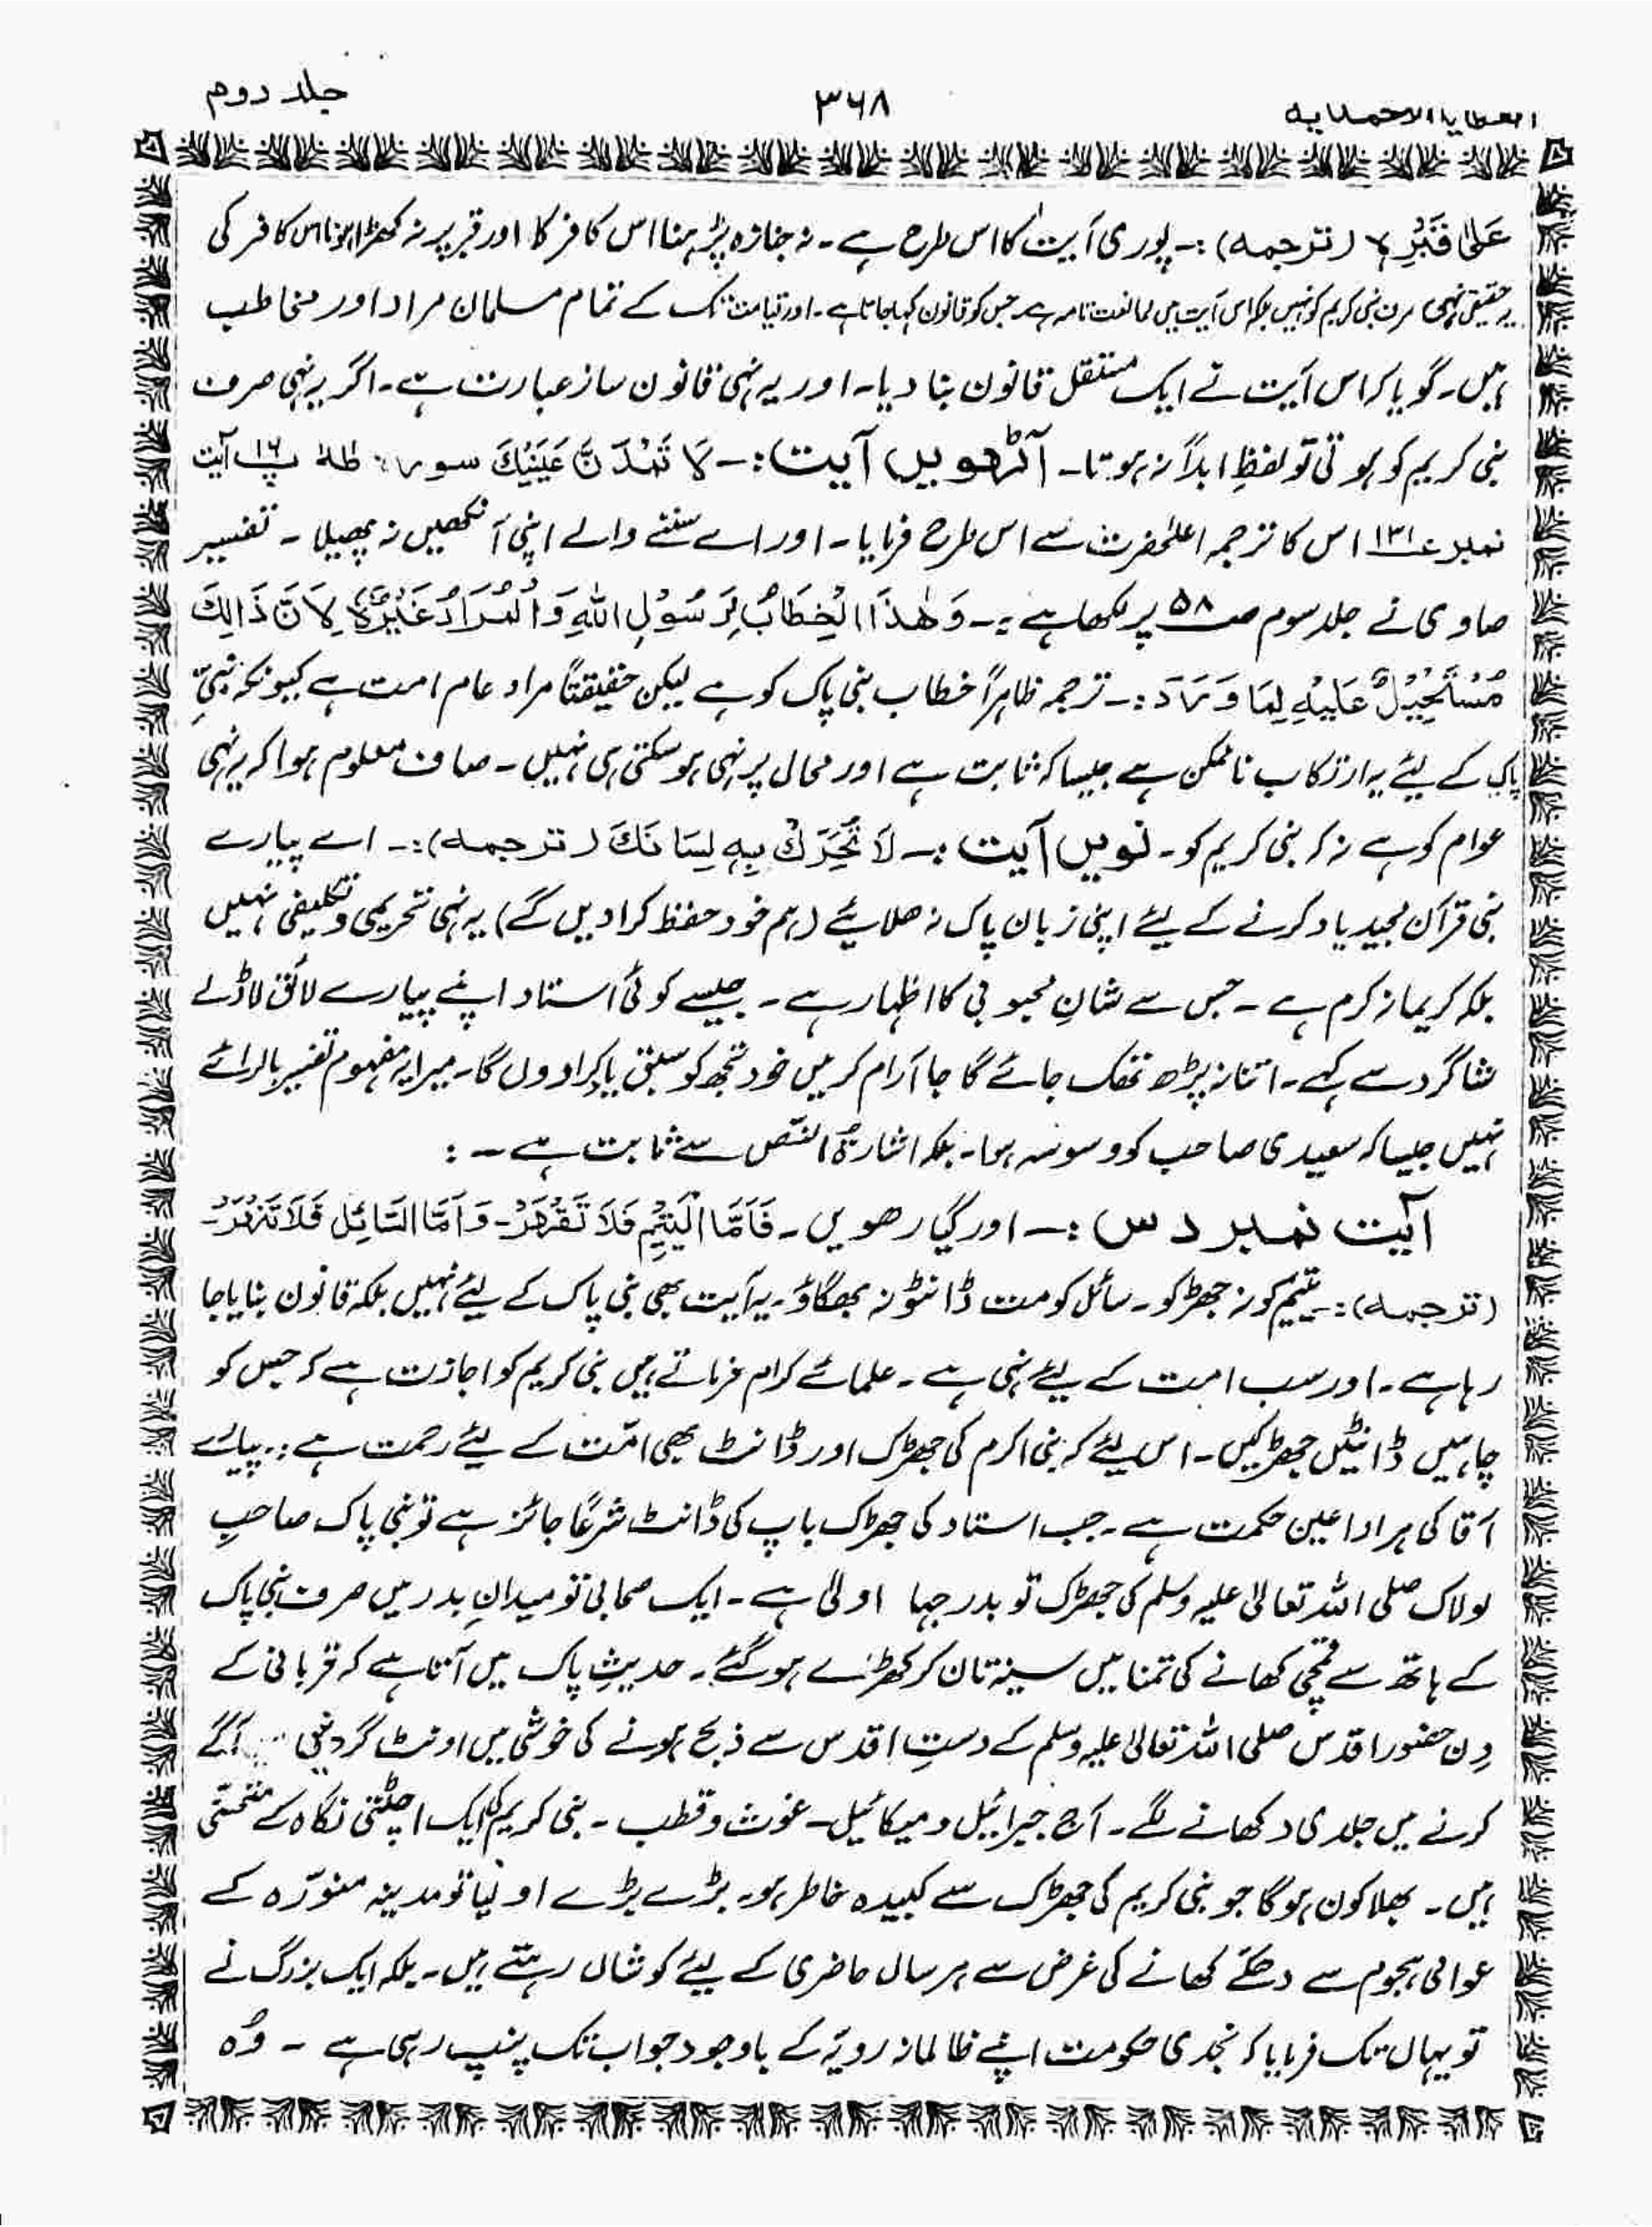 العطایا الاحمدیہ ۳۶۸ جلد دوم
عَلٰی قَبْرِہٖ (ترجمہ) :۔ پوری آیت کا اس طرح ہے۔ نہ جنازہ پڑھنا اس کافر کا اور قبر پر نہ کھڑا ہونا اس کافر کی
یہ حقیقی نہی صرف نبی کریم کو نہیں بلکہ اس آیت میں ممانعت تامہ ہے جس کو قانون کہا جاتا ہے۔ اور قیامت تک کے تمام مسلمان مراد اور مخاطب
ہیں۔ گویا کہ اس آیت نے ایک مستقل قانون بنا دیا۔ اور یہ نہی قانون ساز عبارت ہے۔ اگر یہ نہی صرف
نبی کریم کو ہوتی تو لفظِ ابداً نہ ہوتا۔ آٹھویں آیت :۔ لَا تَمُدَّنَّ عَیْنَیْكَ سورہ طٰہٰ پ۱۶ آیت
نمبر ع۱۳۱ اس کا ترجمہ اعلٰحضرت نے اس طرح فرمایا۔ اور اے سننے والے اپنی آنکھیں نہ پھیلا ۔ تفسیر
صاوی نے جلد سوم صـ۵۸ پر لکھا ہے :۔ وَھٰذَا الْخِطَابُ لِرَسُوْلِ اللّٰہِ وَالْمُرَادُ غَیْرُہٗ لِاَنَّ ذَالِكَ
مُسْتَحِیْلٌ عَلَیْہِ لِمَا وَرَدَ :۔ ترجمہ ظاہراً خطاب نبی پاک کو ہے لیکن حقیقتاً مراد عام امت ہے کیونکہ نبیِّ
پاک کے لیئے یہ ارتکاب ناممکن ہے جیسا کہ ثابت ہے اور محال پر نہی ہو سکتی ہی نہیں ۔ صاف معلوم ہوا کہ یہ نہی
عوام کو ہے نہ کہ نبی کریم کو۔ نویں آیت :۔ لَا تُحَرِّكْ بِہٖ لِسَانَكَ (ترجمہ) :۔ اے پیارے
نبی قرآن مجید یاد کرنے کے لیئے اپنی زبان پاک نہ ھلایئے (ہم خود حفظ کرا دیں گے) یہ نہی تحریمی و تکلیفی نہیں
بلکہ کریمانہ کرم ہے ۔ جس سے شانِ محبوبی کا اظہار ہے ۔ جیسے کوئی استاد اپنے پیارے لائق لاڈلے
شاگرد سے کہے۔ اتنا نہ پڑھ تھک جائے گا جا آرام کر میں خود تجھ کو سبق یاد کرا دوں گا۔ میرا یہ مفہوم تفسیر بالرائے
نہیں جیسا کہ سعیدی صاحب کو وسوسہ ہوا۔ بلکہ اشارۃُ النّص سے ثابت ہے ۔ :
آیت نمبر دس :۔ اور گیارھویں ۔ فَاَمَّا الْیَتِیْمَ فَلَا تَقْھَرْ۔ وَاَمَّا السَّائِلَ فَلَا تَنْھَرْ۔
(ترجمہ) :۔ یتیم کو نہ جھڑکو۔ سائل کو مت ڈانٹو نہ بھگاؤ۔ یہ آیت بھی نبی پاک کے لیئے نہیں بلکہ قانون بنایا جا
رہا ہے۔ اور سب امت کے لیئے نہی ہے ۔ علمائے کرام فرماتے ہیں نبی کریم کو اجازت ہے کہ جس کو
چاہیں ڈانٹیں جھڑکیں ۔ اس لیئے کہ نبی اکرم کی جھڑک اور ڈانٹ بھی امّت کے لیئے رحمت ہے :۔ پیارے
آقا کی ہر ادا عین حکمت ہے ۔ جب استاد کی جھڑک باپ کی ڈانٹ شرعًا جائز ہے تو نبی پاک صاحبِ
لولاک صلی اللہ تعالیٰ علیہ وسلم کی جھڑک تو بدرجہا اولیٰ ہے ۔ ایک صحابی تو میدانِ بدر میں صرف نبی پاک
کے ہاتھ سے قمچی کھانے کی تمنا میں سینہ تان کر کھڑے ہو گئے ۔ حدیثِ پاک میں آتا ہے کہ قربانی کے
دِن حضور اقدس صلی اللہ تعالیٰ علیہ وسلم کے دستِ اقدس سے ذبح ہونے کی خوشی میں اونٹ گردنیں آگے
کرنے میں جلدی دکھانے لگے۔ آج جبرائیل و میکائیل۔ غوث و قطب ۔ نبی کریم کی ایک اچٹتی نگاہ کے متمنّی
ہیں ۔ بھلا کون ہوگا جو نبی کریم کی جھڑک سے کبیدہ خاطر ہو۔ بڑے بڑے اولیا تو مدینہ منوّرہ کے
عوامی ہجوم سے دھکّے کھانے کی غرض سے ہر سال حاضری کے لیئے کوشاں رہتے ہیں۔ بلکہ ایک بزرگ نے
تو یہاں تک فرمایا کہ نجدی حکومت اپنے ظالمانہ رویّہ کے باوجود جو اب تک پنپ رہی ہے ۔ وُہ